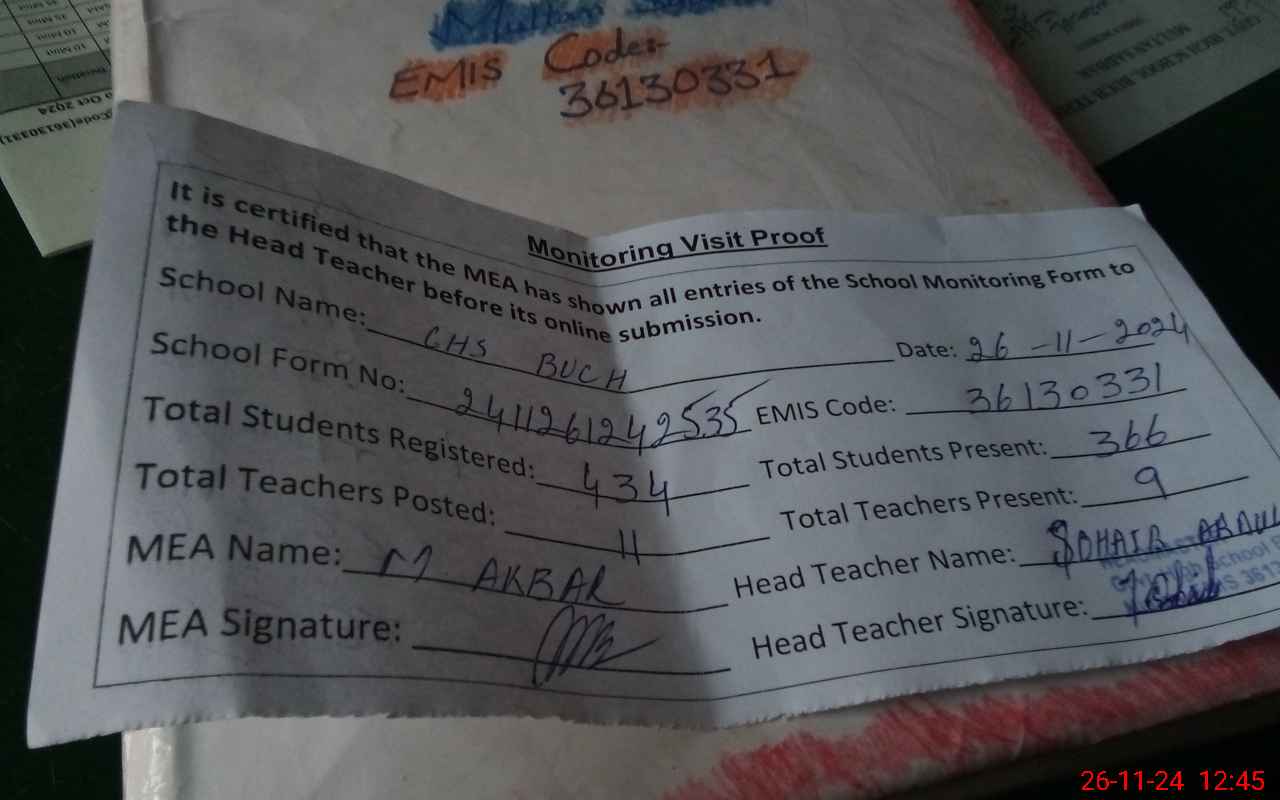 EMIS Code:-
36130331
Monitoring Visit Proof
It is certified that the MEA has shown all entries of the School Monitoring Form to
the Head Teacher before its online submission.
School Name: GHS BUCH Date: 26-11-2024
School Form No: 2411261242535 EMIS Code: 36130331
Total Students Registered: 434 Total Students Present: 366
Total Teachers Posted: 11 Total Teachers Present: 9
MEA Name: M AKBAR Head Teacher Name: SOHAIB
MEA Signature: Head Teacher Signature:
26-11-24 12:45